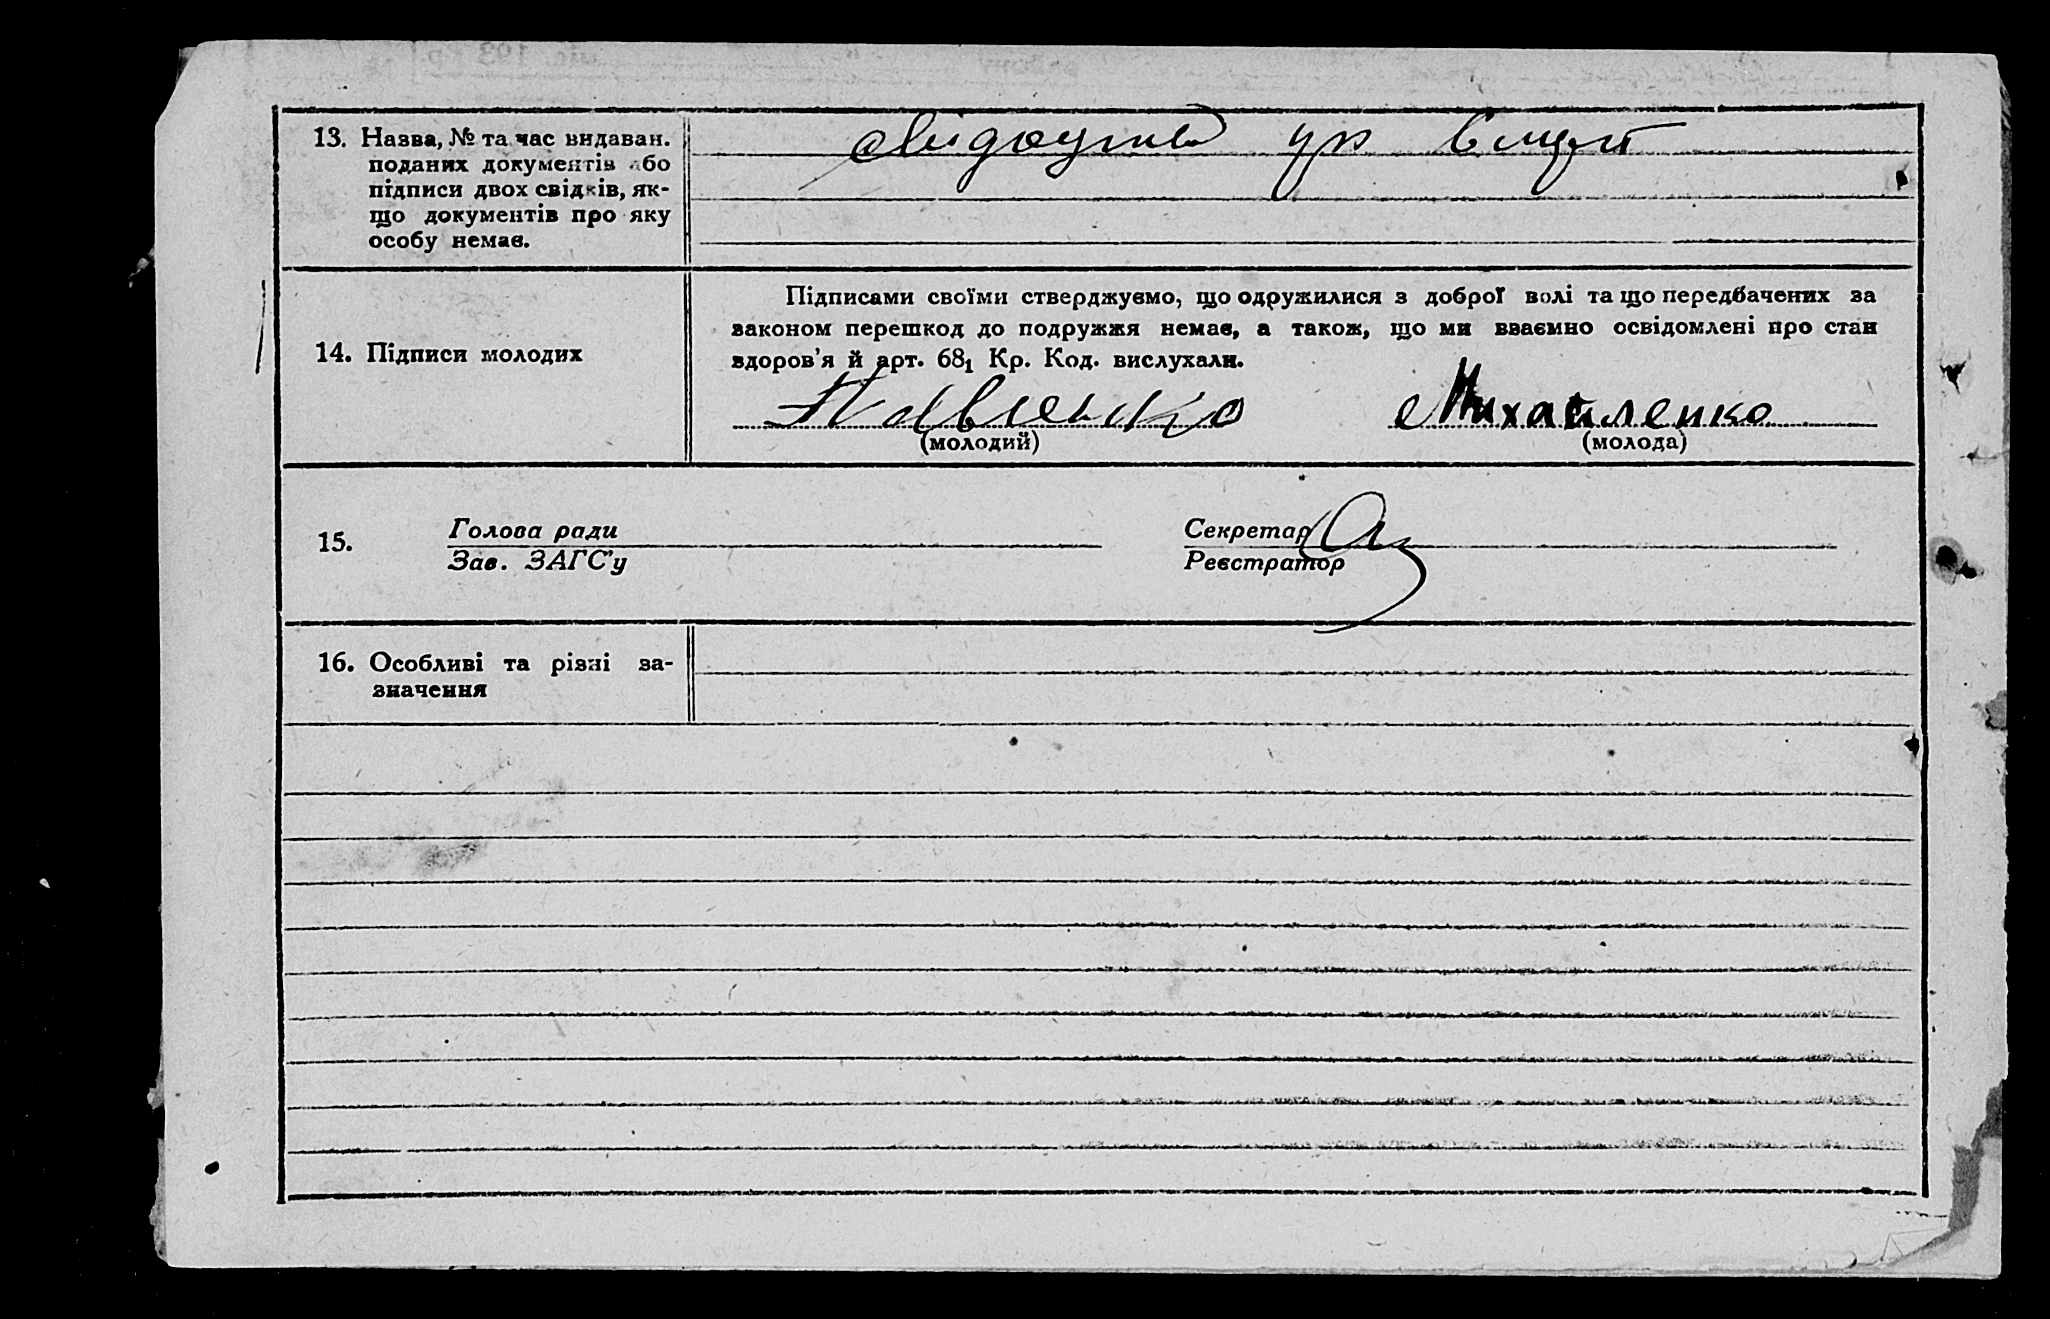 13. Назва, № та час видаван.
поданих документів або
підписи двох свідків, як-
що документів про яку
особу немає.
14. Підписи молодих
Підписами своїми стверджуємо, що одружилися з доброї волі та що передбачених за
законом перешкод до подружжя немає, а також, що ми взаємно освідомлені про стан
здоров'я й арт. 68₁ Кр. Код. вислухали.
Павленко Михайленко
(молодий) (молода)
15. Голова ради Секретар
Зав. ЗАГС'у Реєстратор
16. Особливі та різні за-
значення